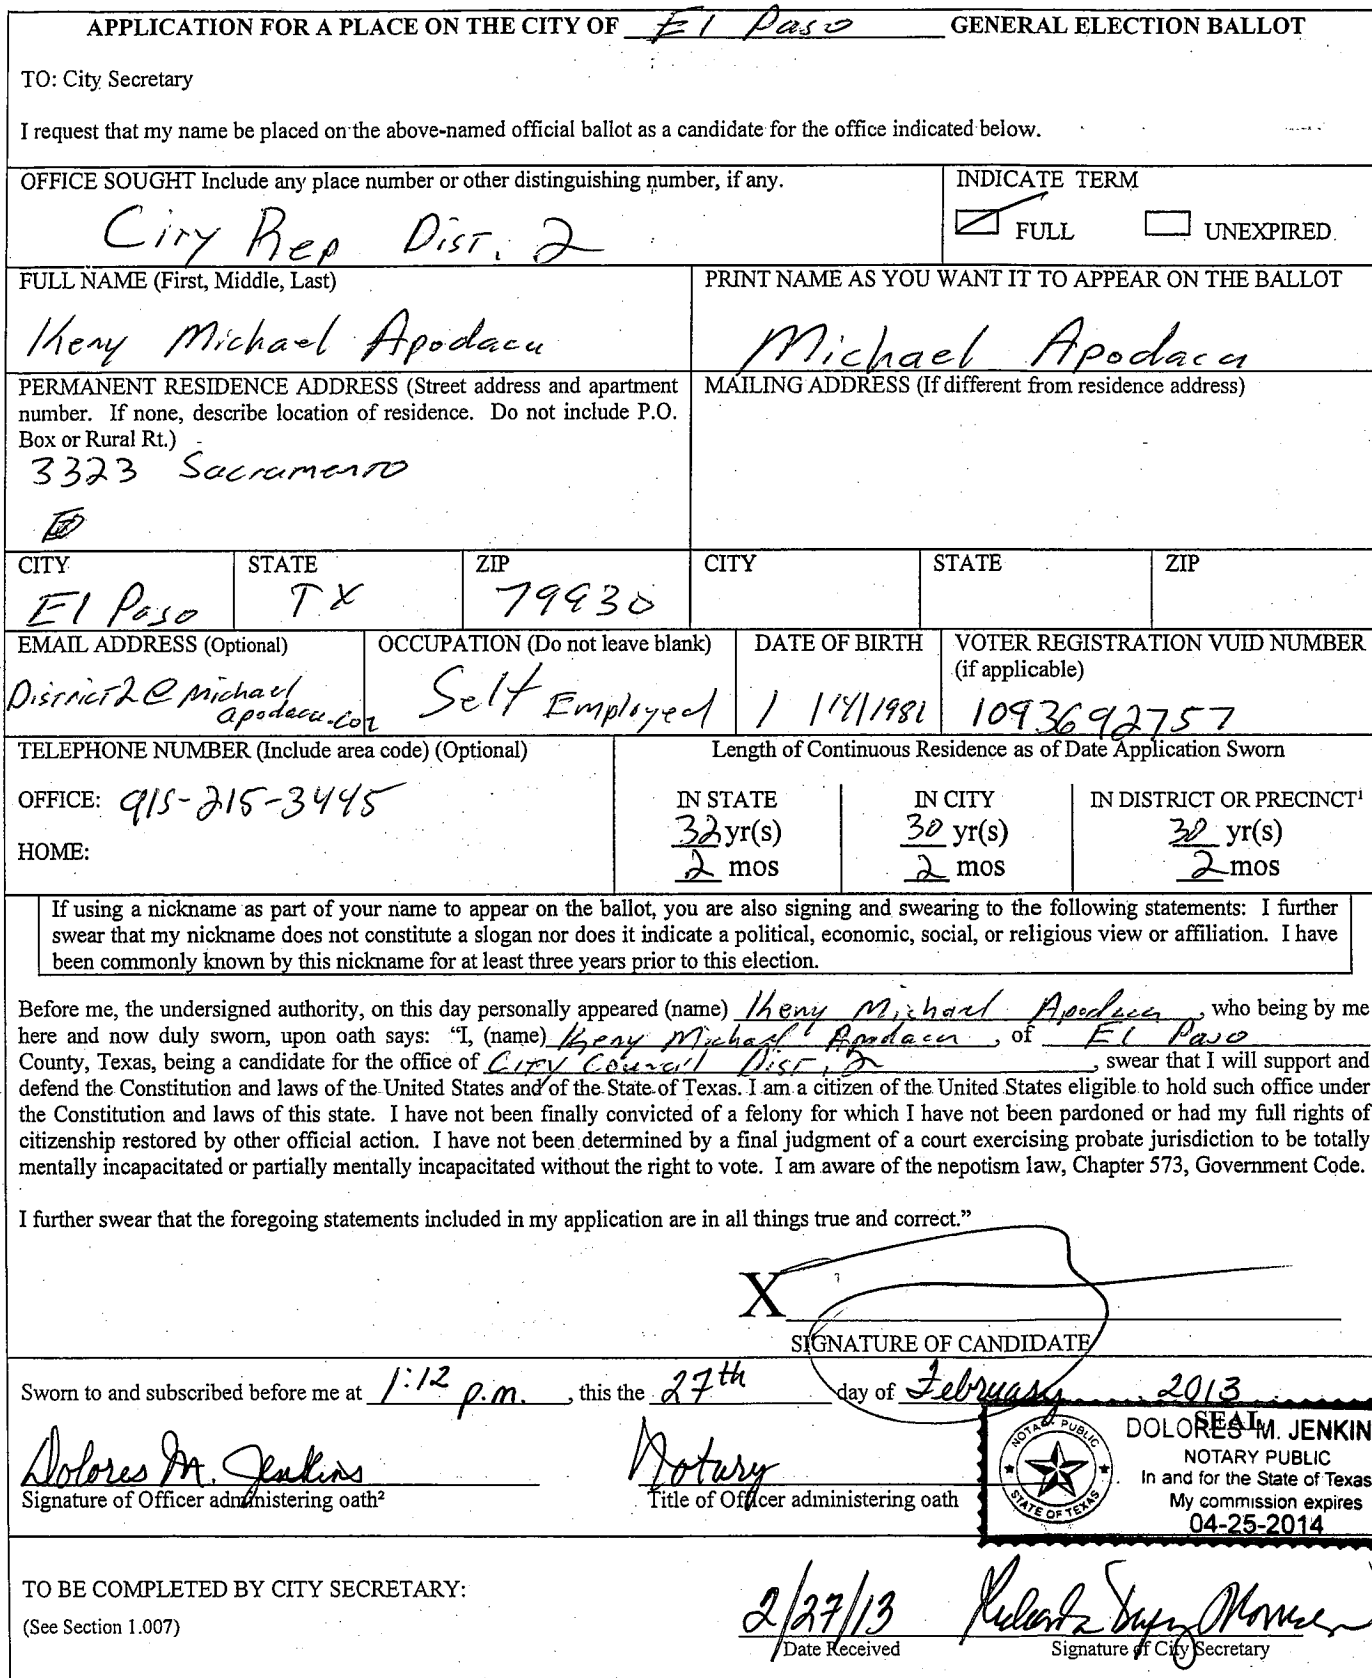 APPLICATION FOR A PLACE ON THE CITY OF El Paso GENERAL ELECTION BALLOT
TO: City Secretary
I request that my name be placed on the above-named official ballot as a candidate for the office indicated below.
OFFICE SOUGHT Include any place number or other distinguishing number, if any.
City Rep Dist. 2
INDICATE TERM
FULL UNEXPIRED
FULL NAME (First, Middle, Last)
Keny Michael Apodaca
PRINT NAME AS YOU WANT IT TO APPEAR ON THE BALLOT
Michael Apodaca
PERMANENT RESIDENCE ADDRESS (Street address and apartment
number. If none, describe location of residence. Do not include P.O.
Box or Rural Rt.)
3323 Sacramento
MAILING ADDRESS (If different from residence address)
CITY STATE ZIP CITY STATE ZIP
El Paso TX 79930
EMAIL ADDRESS (Optional)
District2@michael
apodaca.com
OCCUPATION (Do not leave blank)
Self Employed
DATE OF BIRTH
1/14/1981
VOTER REGISTRATION VUID NUMBER
(if applicable)
1093692757
TELEPHONE NUMBER (Include area code) (Optional)
OFFICE: 915-215-3445
HOME:
Length of Continuous Residence as of Date Application Sworn
IN STATE IN CITY IN DISTRICT OR PRECINCT¹
32 yr(s) 30 yr(s) 30 yr(s)
2 mos 2 mos 2 mos
If using a nickname as part of your name to appear on the ballot, you are also signing and swearing to the following statements: I further
swear that my nickname does not constitute a slogan nor does it indicate a political, economic, social, or religious view or affiliation. I have
been commonly known by this nickname for at least three years prior to this election.
Before me, the undersigned authority, on this day personally appeared (name) Keny Michael Apodaca, who being by me
here and now duly sworn, upon oath says: "I, (name) Keny Michael Apodaca, of El Paso
County, Texas, being a candidate for the office of City Council Dist. 2, swear that I will support and
defend the Constitution and laws of the United States and of the State of Texas. I am a citizen of the United States eligible to hold such office under
the Constitution and laws of this state. I have not been finally convicted of a felony for which I have not been pardoned or had my full rights of
citizenship restored by other official action. I have not been determined by a final judgment of a court exercising probate jurisdiction to be totally
mentally incapacitated or partially mentally incapacitated without the right to vote. I am aware of the nepotism law, Chapter 573, Government Code.
I further swear that the foregoing statements included in my application are in all things true and correct."
X
SIGNATURE OF CANDIDATE
Sworn to and subscribed before me at 1:12 p.m., this the 27th day of February 2013
SEAL
DOLORES M. JENKIN
NOTARY PUBLIC
In and for the State of Texas
My commission expires
04-25-2014
NOTARY PUBLIC
STATE OF TEXAS
Dolores M. Jenkins
Signature of Officer administering oath²
Notary
Title of Officer administering oath
TO BE COMPLETED BY CITY SECRETARY:
(See Section 1.007)
2/27/13
Date Received
Signature of City Secretary